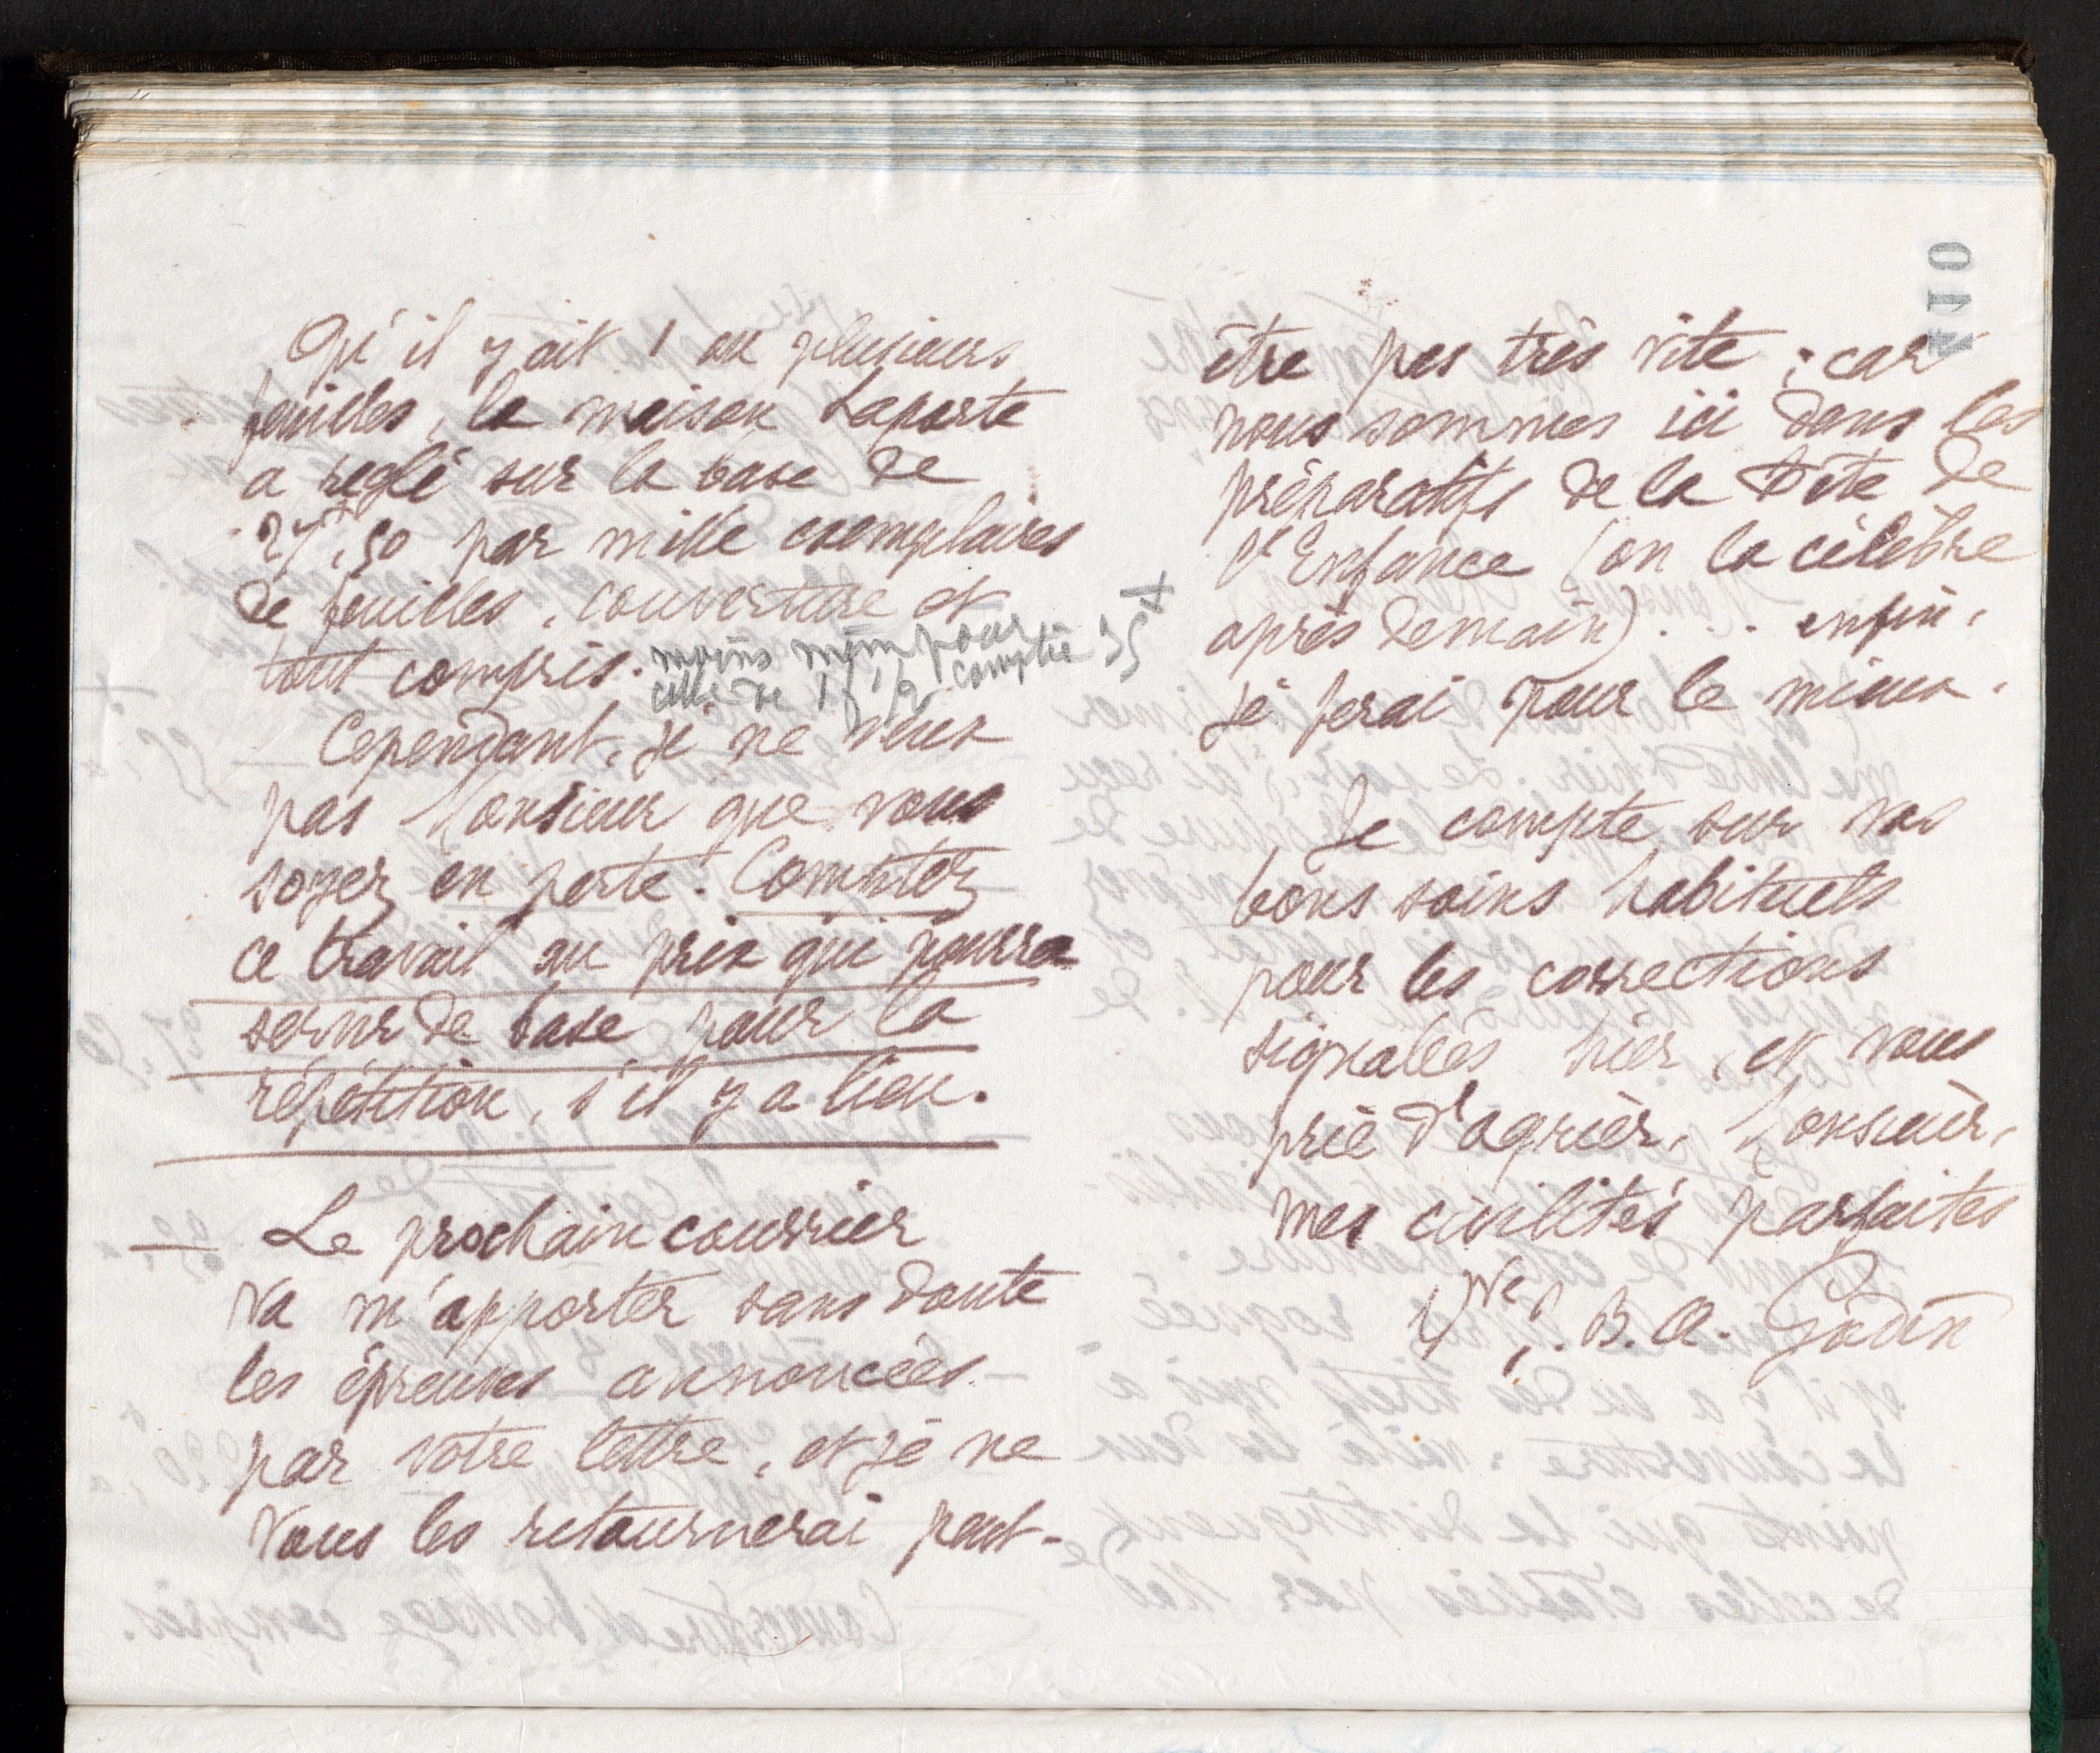 Qu'il y ait 1 ou plusieurs
feuilles, la maison Laporte
a reglé sur la base de
27f,50 par mille exemplaires
de feuilles, couverture et
tout compris. moins même pour
celle de 1 f 1/2 comptée 35 +
Cependant, je ne veux
pas Monsieur que vous
soyez en perte. Comptez
ce travail au prix qui pourra
servir de base pour la
répétition, s'il y a lieu.
— Le prochain courrier
va m'apporter sans doute
les épreuves annoncées
par votre lettre, et je ne
vous les retournerai peut-
110
être pas très vite ; car
nous sommes ici dans les
préparatifs de la Fête de
l'Enfance (on la célèbre
après demain) ... enfin,
je ferai pour le mieux.
Je compte sur vos
bons soins habituels
pour les corrections
signalées hier, et vous
prie d'agréer, Monsieur,
mes civilités parfaites
Vve J. B. A. Godin